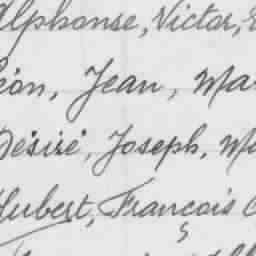 Alphonse, Victor,
Léon, Jean,
Désiré, Joseph,
Hubert, François